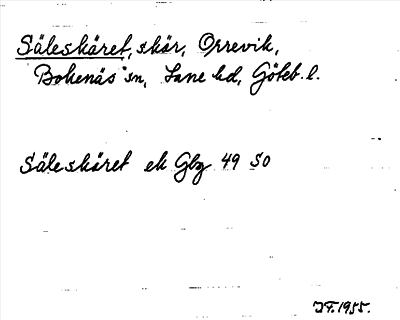 Säleskäret, skär, Orrevik,
Bokenäs sn, Lane hd, Göteb. l.
Säleskäret ek Gbg 49 SO
J.F. 1955.